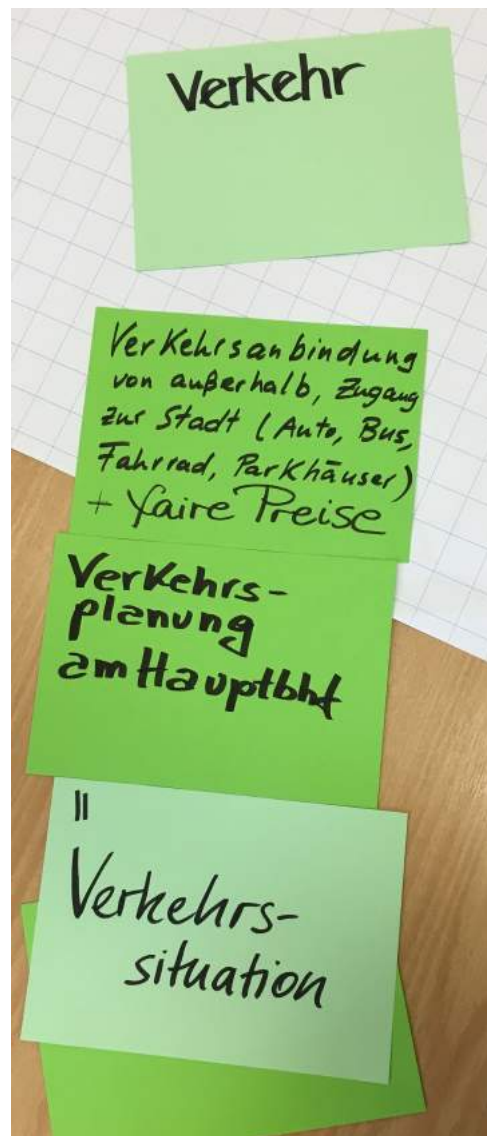 Verkehr
Verkehrsanbindung
von außerhalb, Zugang
zur Stadt (Auto, Bus,
Fahrrad, Parkhäuser)
+ faire Preise
Verkehrs-
planung
am Hauptbhf
||
Verkehrs-
situation